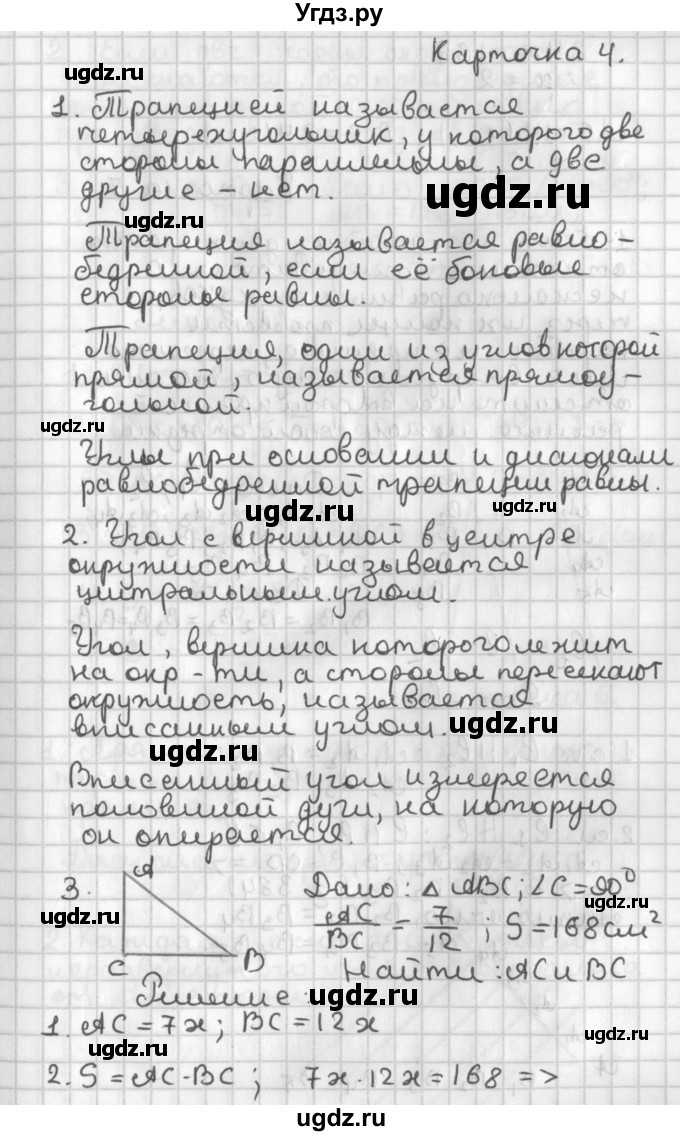 Угдз.ру
Карточка 4.
ugdz.ru
1. Трапецией называется
четырехугольник, у которого две
стороны параллельны, а две
другие - нет.
ugdz.ru
ugdz.ru
Трапеция называется равно-
бедренной, если её боковые
стороны равны.
ugdz.ru
Трапеция, один из углов которой
прямой, называется прямоу-
гольной.
ugdz.ru
ugdz.ru
Углы при основании и диагонали
равнобедренной трапеции равны.
ugdz.ru
2. Угол с вершиной в центре
окружности называется
центральным углом.
ugdz.ru
ugdz.ru
Угол, вершина которого лежит
на окр-ти, а стороны пересекают
окружность, называется
вписанным углом.
ugdz.ru
ugdz.ru
Вписанный угол измеряется
половиной дуги, на которую
он опирается.
ugdz.ru
3. A
C B
ugdz.ru
Дано: △ ABC; ∠C=90⁰
AC/BC = 7/12; S=168см²
ugdz.ru
Найти: AC и BC
Решение:
ugdz.ru
1. AC = 7x; BC = 12x
ugdz.ru
2. S = AC·BC; 7x·12x=168 =>
ugdz.ru
ugdz.ru
ugdz.ru